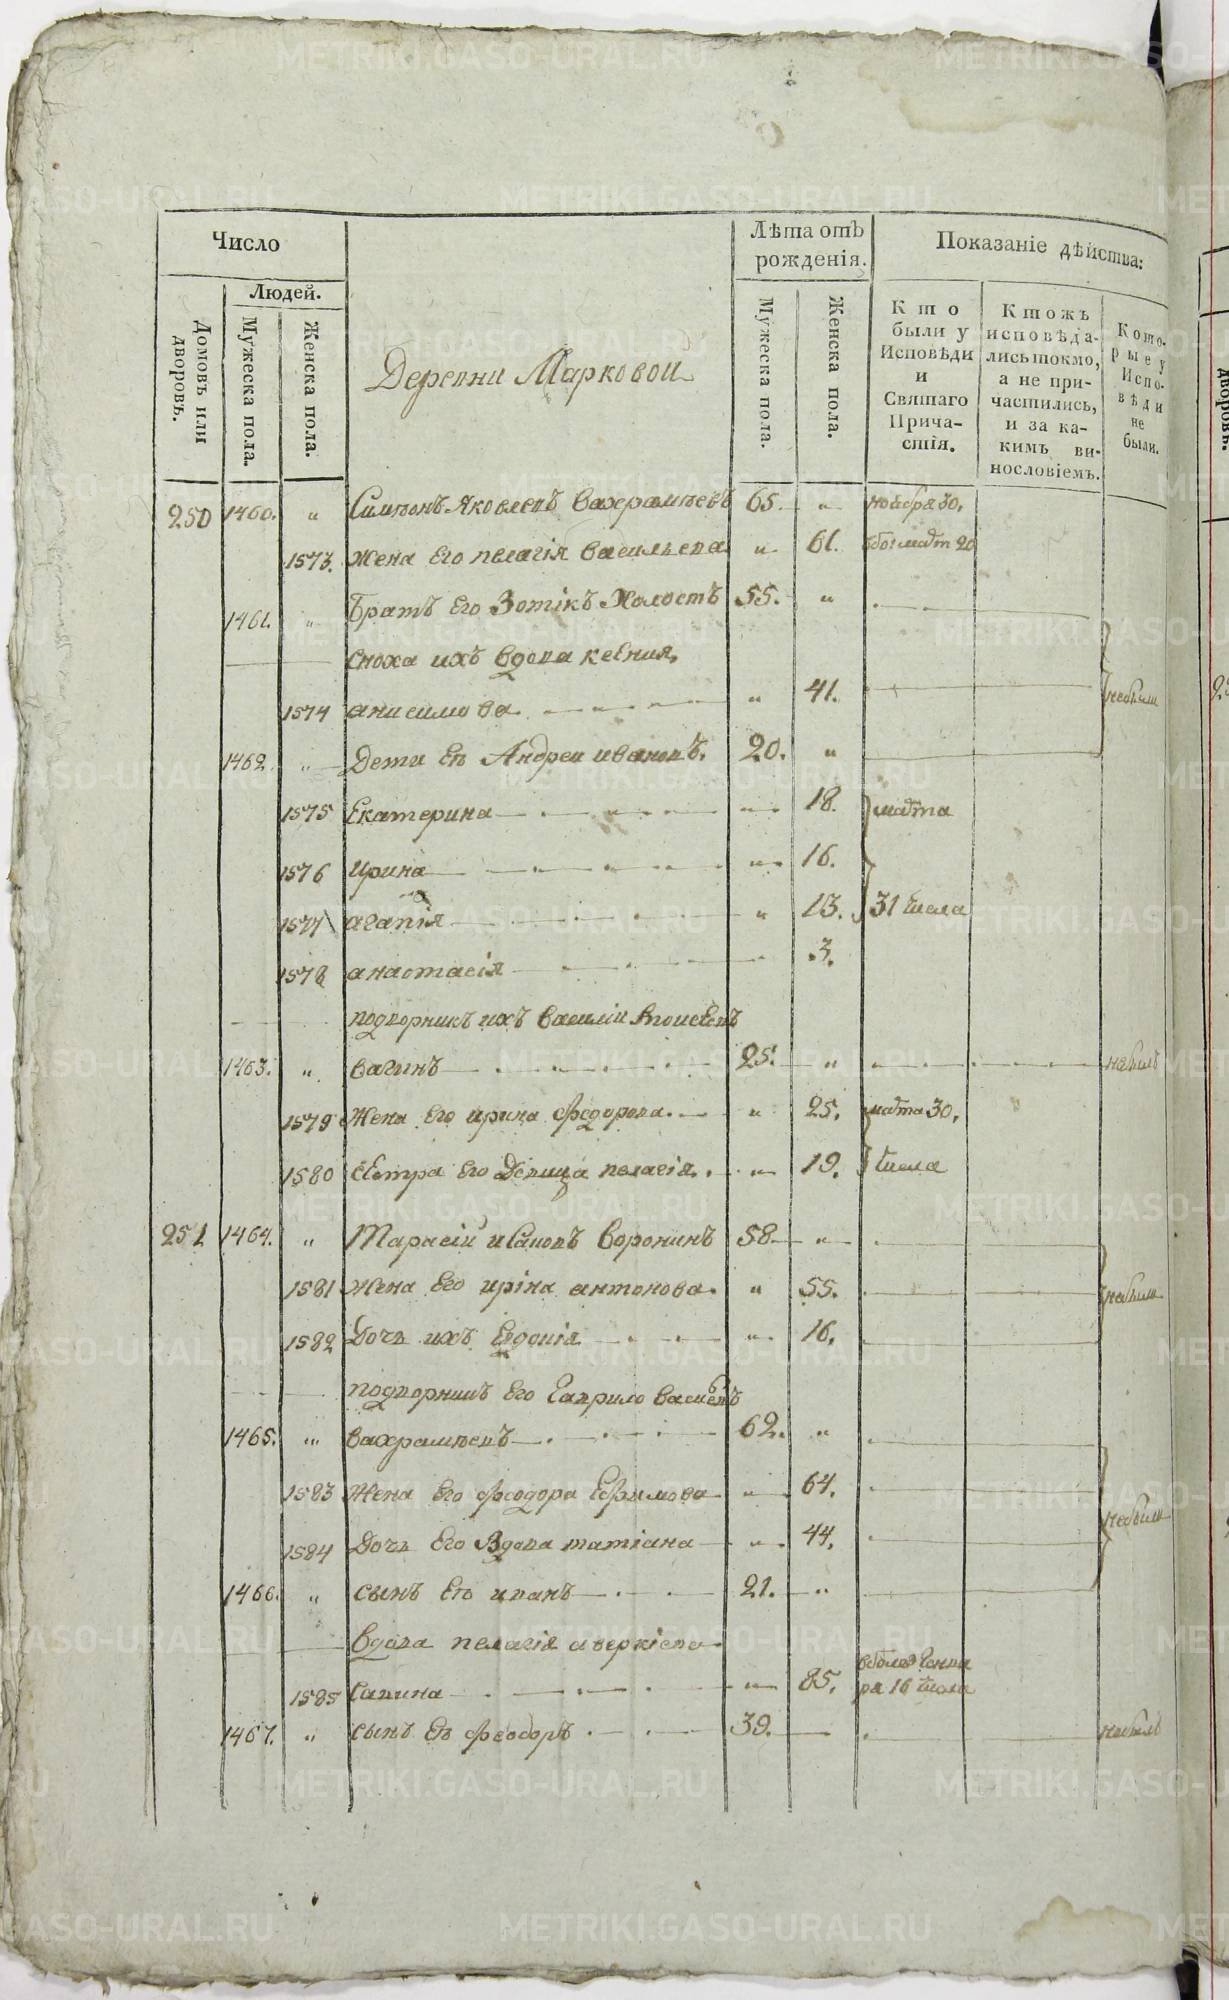 Число
Людей.
Домовъ или дворовъ.
Мужеска пола.
Женска пола.
Деревни Марковой
Лѣта отъ рожденія.
Мужеска пола.
Женска пола.
Показаніе дѣйства:
Кто были у Исповѣди и Святаго Причастія.
Ктожъ исповѣдались токмо, а не причастились, и за какимъ винословіемъ.
Которые у Исповѣди не были.
250 1460. " Симеонъ Яковлевъ Вахрамѣевъ 65. " ноября 30,
1573. Жена Его пелагія васильева " 61. 20
1461. " Братъ Его Зотікъ Холостъ 55. "
Сноха ихъ вдова ксения,
1574 анисимова " 41. небыли
1462. " Дети Еѣ Андреи ивановъ. 20. "
1575 Екатерина " 18. марта
1576 ирина " 16.
1577 агапія " 13. 31 числа
1578 анастасія 3.
подворникъ ихъ василіи
1463. " вагинъ 25. " небылъ
1579 Жена Его ирина федорова. " 25. марта 30,
1580 сестра Его девица пелагія. " 19. числа
251 1464. " Тарасій Воронинъ 58 "
1581 жена Его иріна антонова. " 55. небыли
1582 Дочь ихъ Евдокія " 16.
подворникъ Его Гаврило
1465. " вахрамѣевъ 62. "
1583 Жена Его феодора Ефимова " 64.
1584 Дочь Его вдова татіана " 44. небыли
1466. " сынъ Его иванъ 21. "
Вдова пелагія аверкіева
1585 Савина " 85. ря 16 числа
1467. " сынъ Еѣ феодоръ 39. небылъ
METRIKI.GASO-URAL.RU